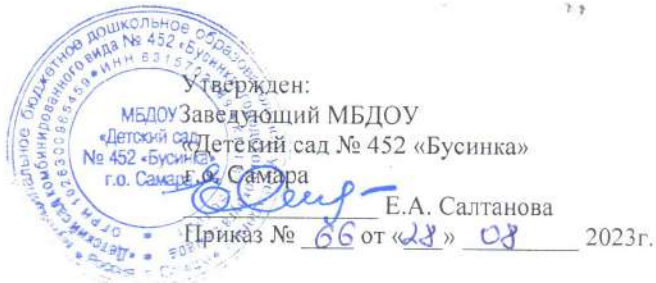 Утвержден:
Заведующий МБДОУ
«Детский сад № 452 «Бусинка»
г.о. Самара
Е.А. Салтанова
Приказ № 66 от «28» 08 2023г.
МБДОУ
«Детский сад
№ 452 «Бусинка»
г.о. Самара